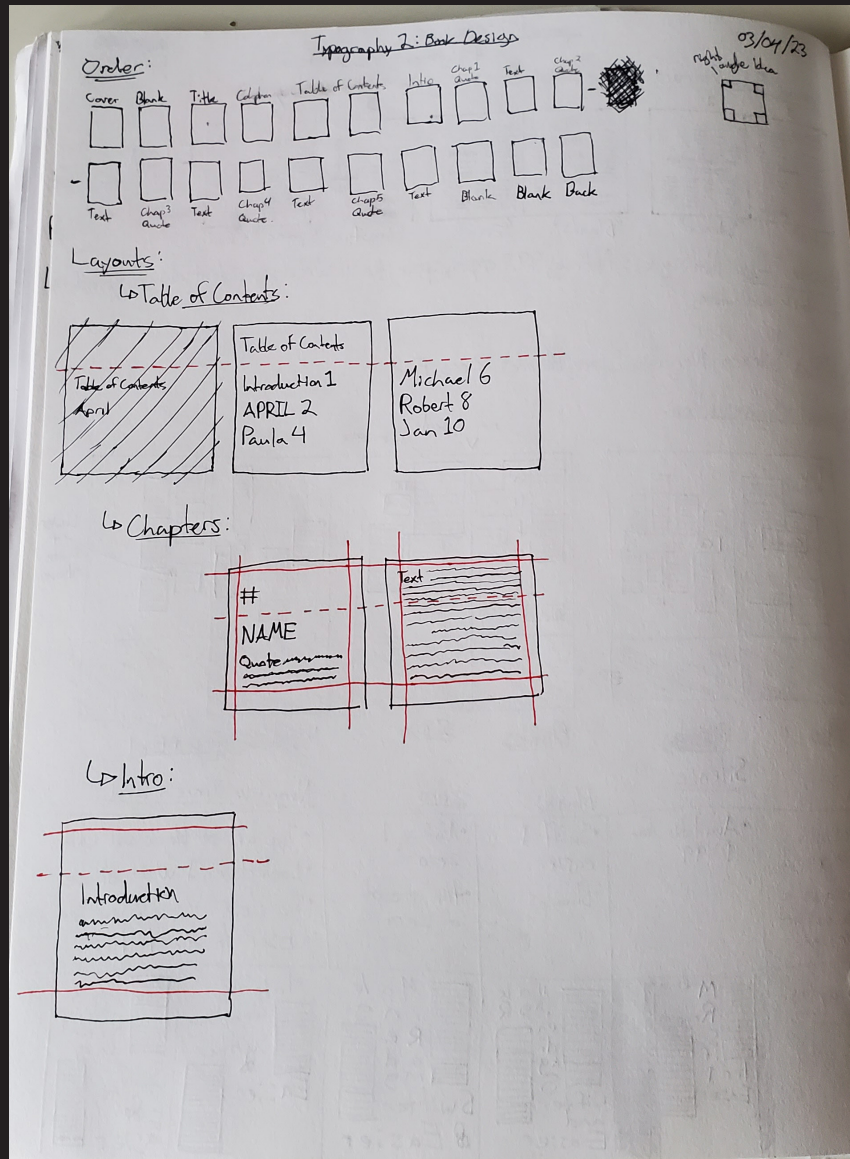 Typography 2: Book Design
03/04/23
Order:
right angle idea
Cover Blank Title Colophon Table of Contents Intro Chap 1 Quote Text Chap 2 Quote
Text Chap 3 Quote Text Chap 4 Quote Text Chap 5 Quote Text Blank Blank Back
Layouts:
↳ Table of Contents:
Table of Contents
April
Table of Contents
Introduction 1
APRIL 2
Paula 4
Michael 6
Robert 8
Jan 10
↳ Chapters:
#
NAME
Quote
Text
↳ Intro:
Introduction